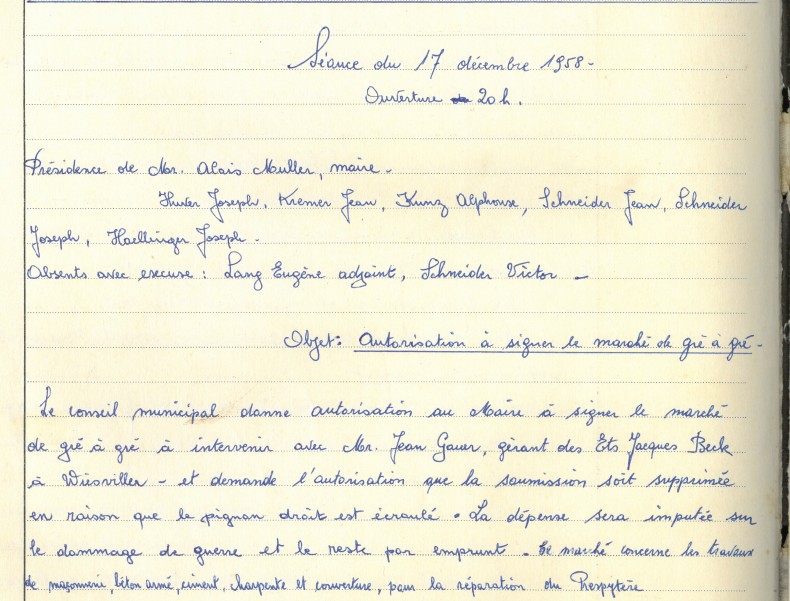 Séance du 17 décembre 1958 -
Ouverture 20 h.
Présidence de Mr. Alois Muller, maire -
Huver Joseph, Kremer Jean, Kunz Alphonse, Schneider Jean, Schneider
Joseph, Haellinger Joseph -
Absents avec excuse : Lang Eugène adjoint, Schneider Victor -
Objet : Autorisation à signer le marché de gré à gré -
Le conseil municipal donne autorisation au Maire à signer le marché
de gré à gré à intervenir avec Mr. Jean Gauer, gérant des Ets Jacques Beck
à Wiesviller - et demande l'autorisation que la soumission soit supprimée
en raison que le pignon droit est écroulé. La dépense sera imputée sur
le dommage de guerre et le reste par emprunt - Ce marché concerne les travaux
de maçonnerie, béton armé, ciment, charpente et couverture, pour la réparation du Presbytère